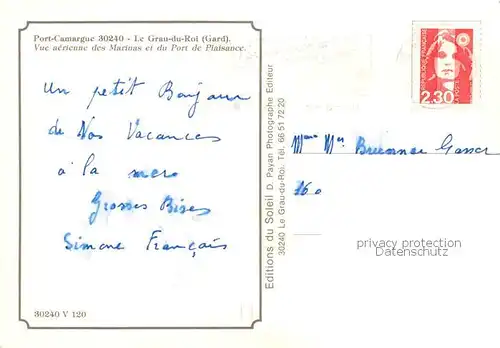 Port-Camargue 30240 - Le Grau-du-Roi (Gard).
Vue aérienne des Marinas et du Port de Plaisance.
un petit Bonjour
de Nos Vacances
à la mer
Grosses Bises
Simone François
30240 V 120
Editions du Soleil D. Payan Photographe Editeur
30240 Le Grau-du-Roi Tél. 66 51 72 20
REPUBLIQUE FRANÇAISE
LA POSTE
2,30
Mme Mr
privacy protection
Datenschutz